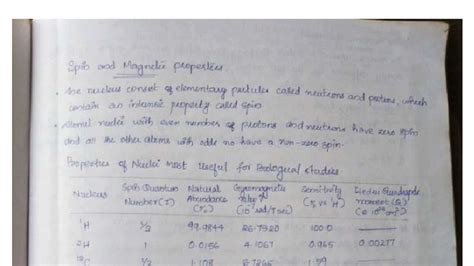 Spin and Magnetic properties.
• The nucleus consist of elementary particles called neutrons and protons, which
contain an intrinsic property called spin.
• Atomic nuclei with even number of protons and neutrons have zero spin
and all the other atoms with odd no have a non-zero spin.
Properties of Nuclei most Useful for Biological studies
Nucleus Spin Quantum Number (I) Natural Abundance (%) Gyromagnetic ratio (10⁷ rad/T sec) Sensitivity (% vs ¹H) moment (Q)
¹H 1/2 99.9844 26.7520 100.0
²H 1 0.0156 4.1067 0.965 0.00277
¹³C 1/2 1.108 1.59